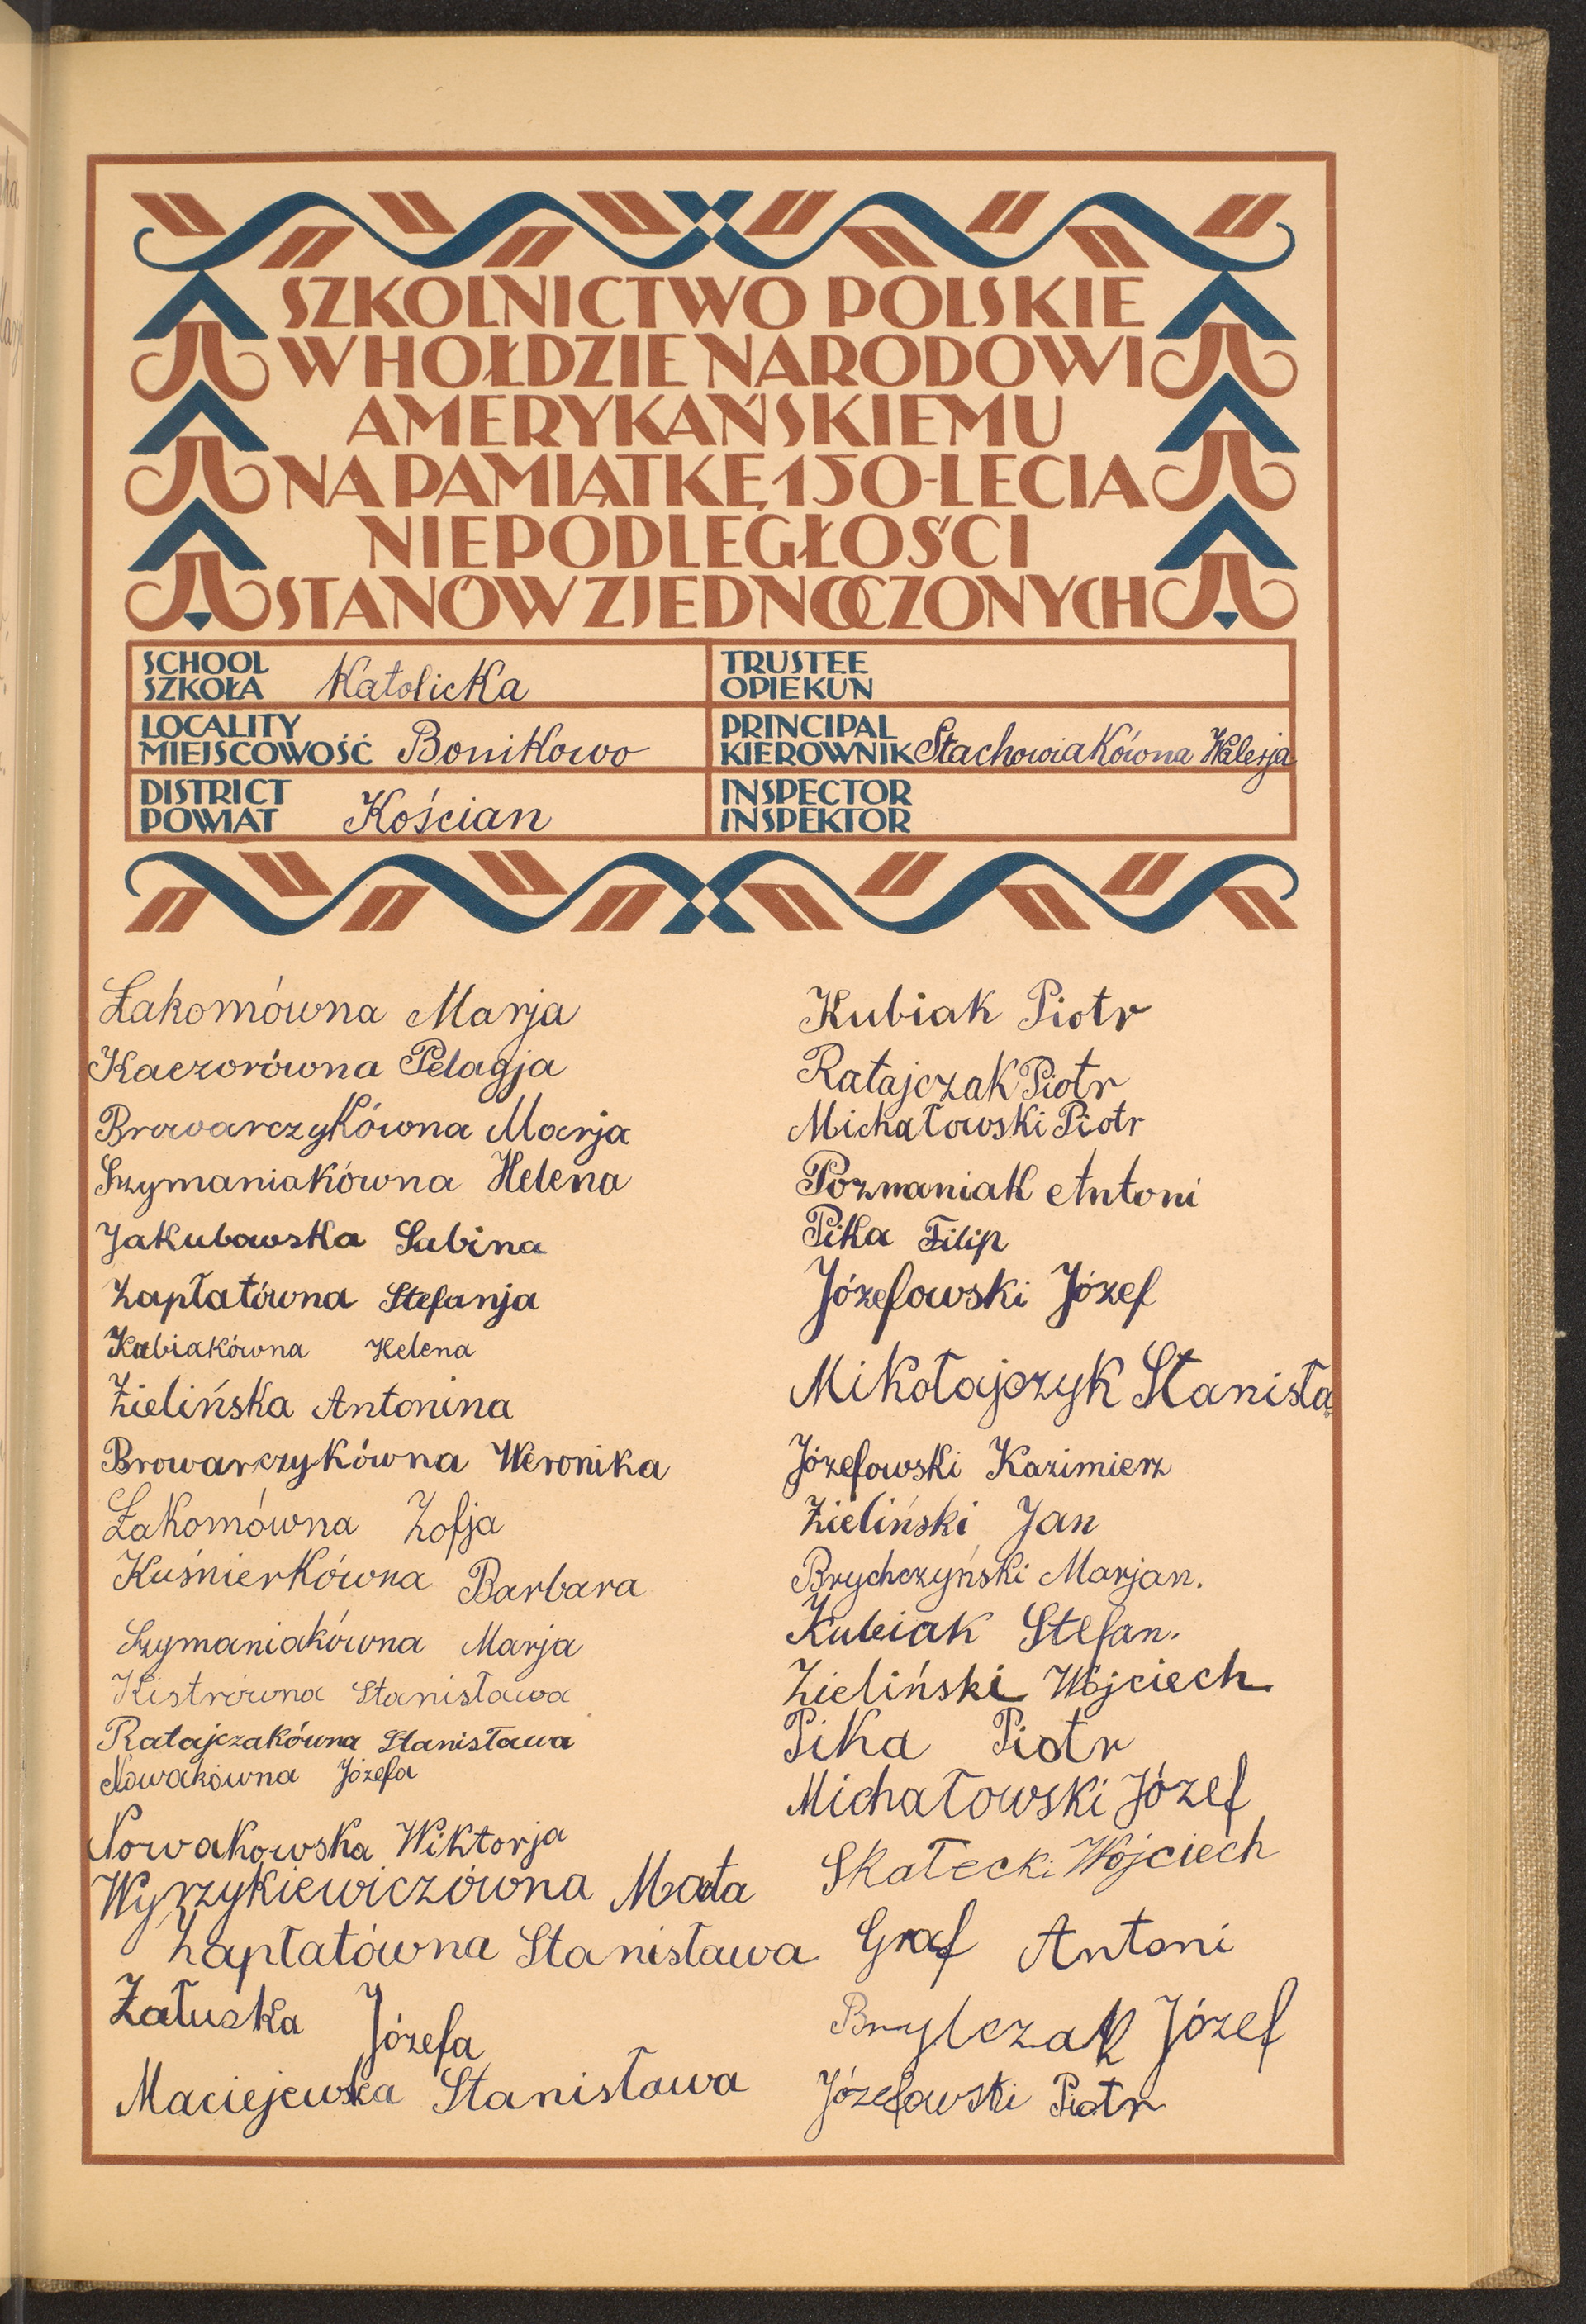 SZKOLNICTWO POLSKIE
W HOŁDZIE NARODOWI
AMERYKAŃSKIEMU
NA PAMIĄTKĘ 150-LECIA
NIEPODLEGŁOŚCI
STANÓW ZJEDNOCZONYCH
SCHOOL
SZKOŁA Katolicka
TRUSTEE
OPIEKUN
LOCALITY
MIEJSCOWOŚĆ Bonikowo
PRINCIPAL
KIEROWNIK Stachowiakówna Walerja
DISTRICT
POWIAT Kościan
INSPECTOR
INSPEKTOR
Łakomówna Marja
Kaczorówna Pelagja
Browarczykówna Marja
Szymaniakówna Helena
Jakubowska Sabina
Zapłatówna Stefanja
Kubiakówna Helena
Zielińska Antonina
Browarczykówna Weronika
Łakomówna Zofja
Kuśnierkówna Barbara
Szymaniakówna Marja
Kistrówna Stanisława
Ratajczakówna Stanisława
Nowakówna Józefa
Nowakowska Wiktorja
Wyrzykiewiczówna
Zapłatówna Stanisława
Załuska Józefa
Maciejewska Stanisława
Kubiak Piotr
Ratajczak Piotr
Michałowski Piotr
Poznaniak Antoni
Pika Filip
Józefowski Józef
Mikołajczyk Stanisła
Józefowski Kazimierz
Zieliński Jan
Brychczyński Marjan.
Kubiak Stefan.
Zieliński Wojciech
Pika Piotr
Michałowski Józef
Skałecki Wojciech
Graf Antoni
Brylczak Józef
Józefowski Piotr